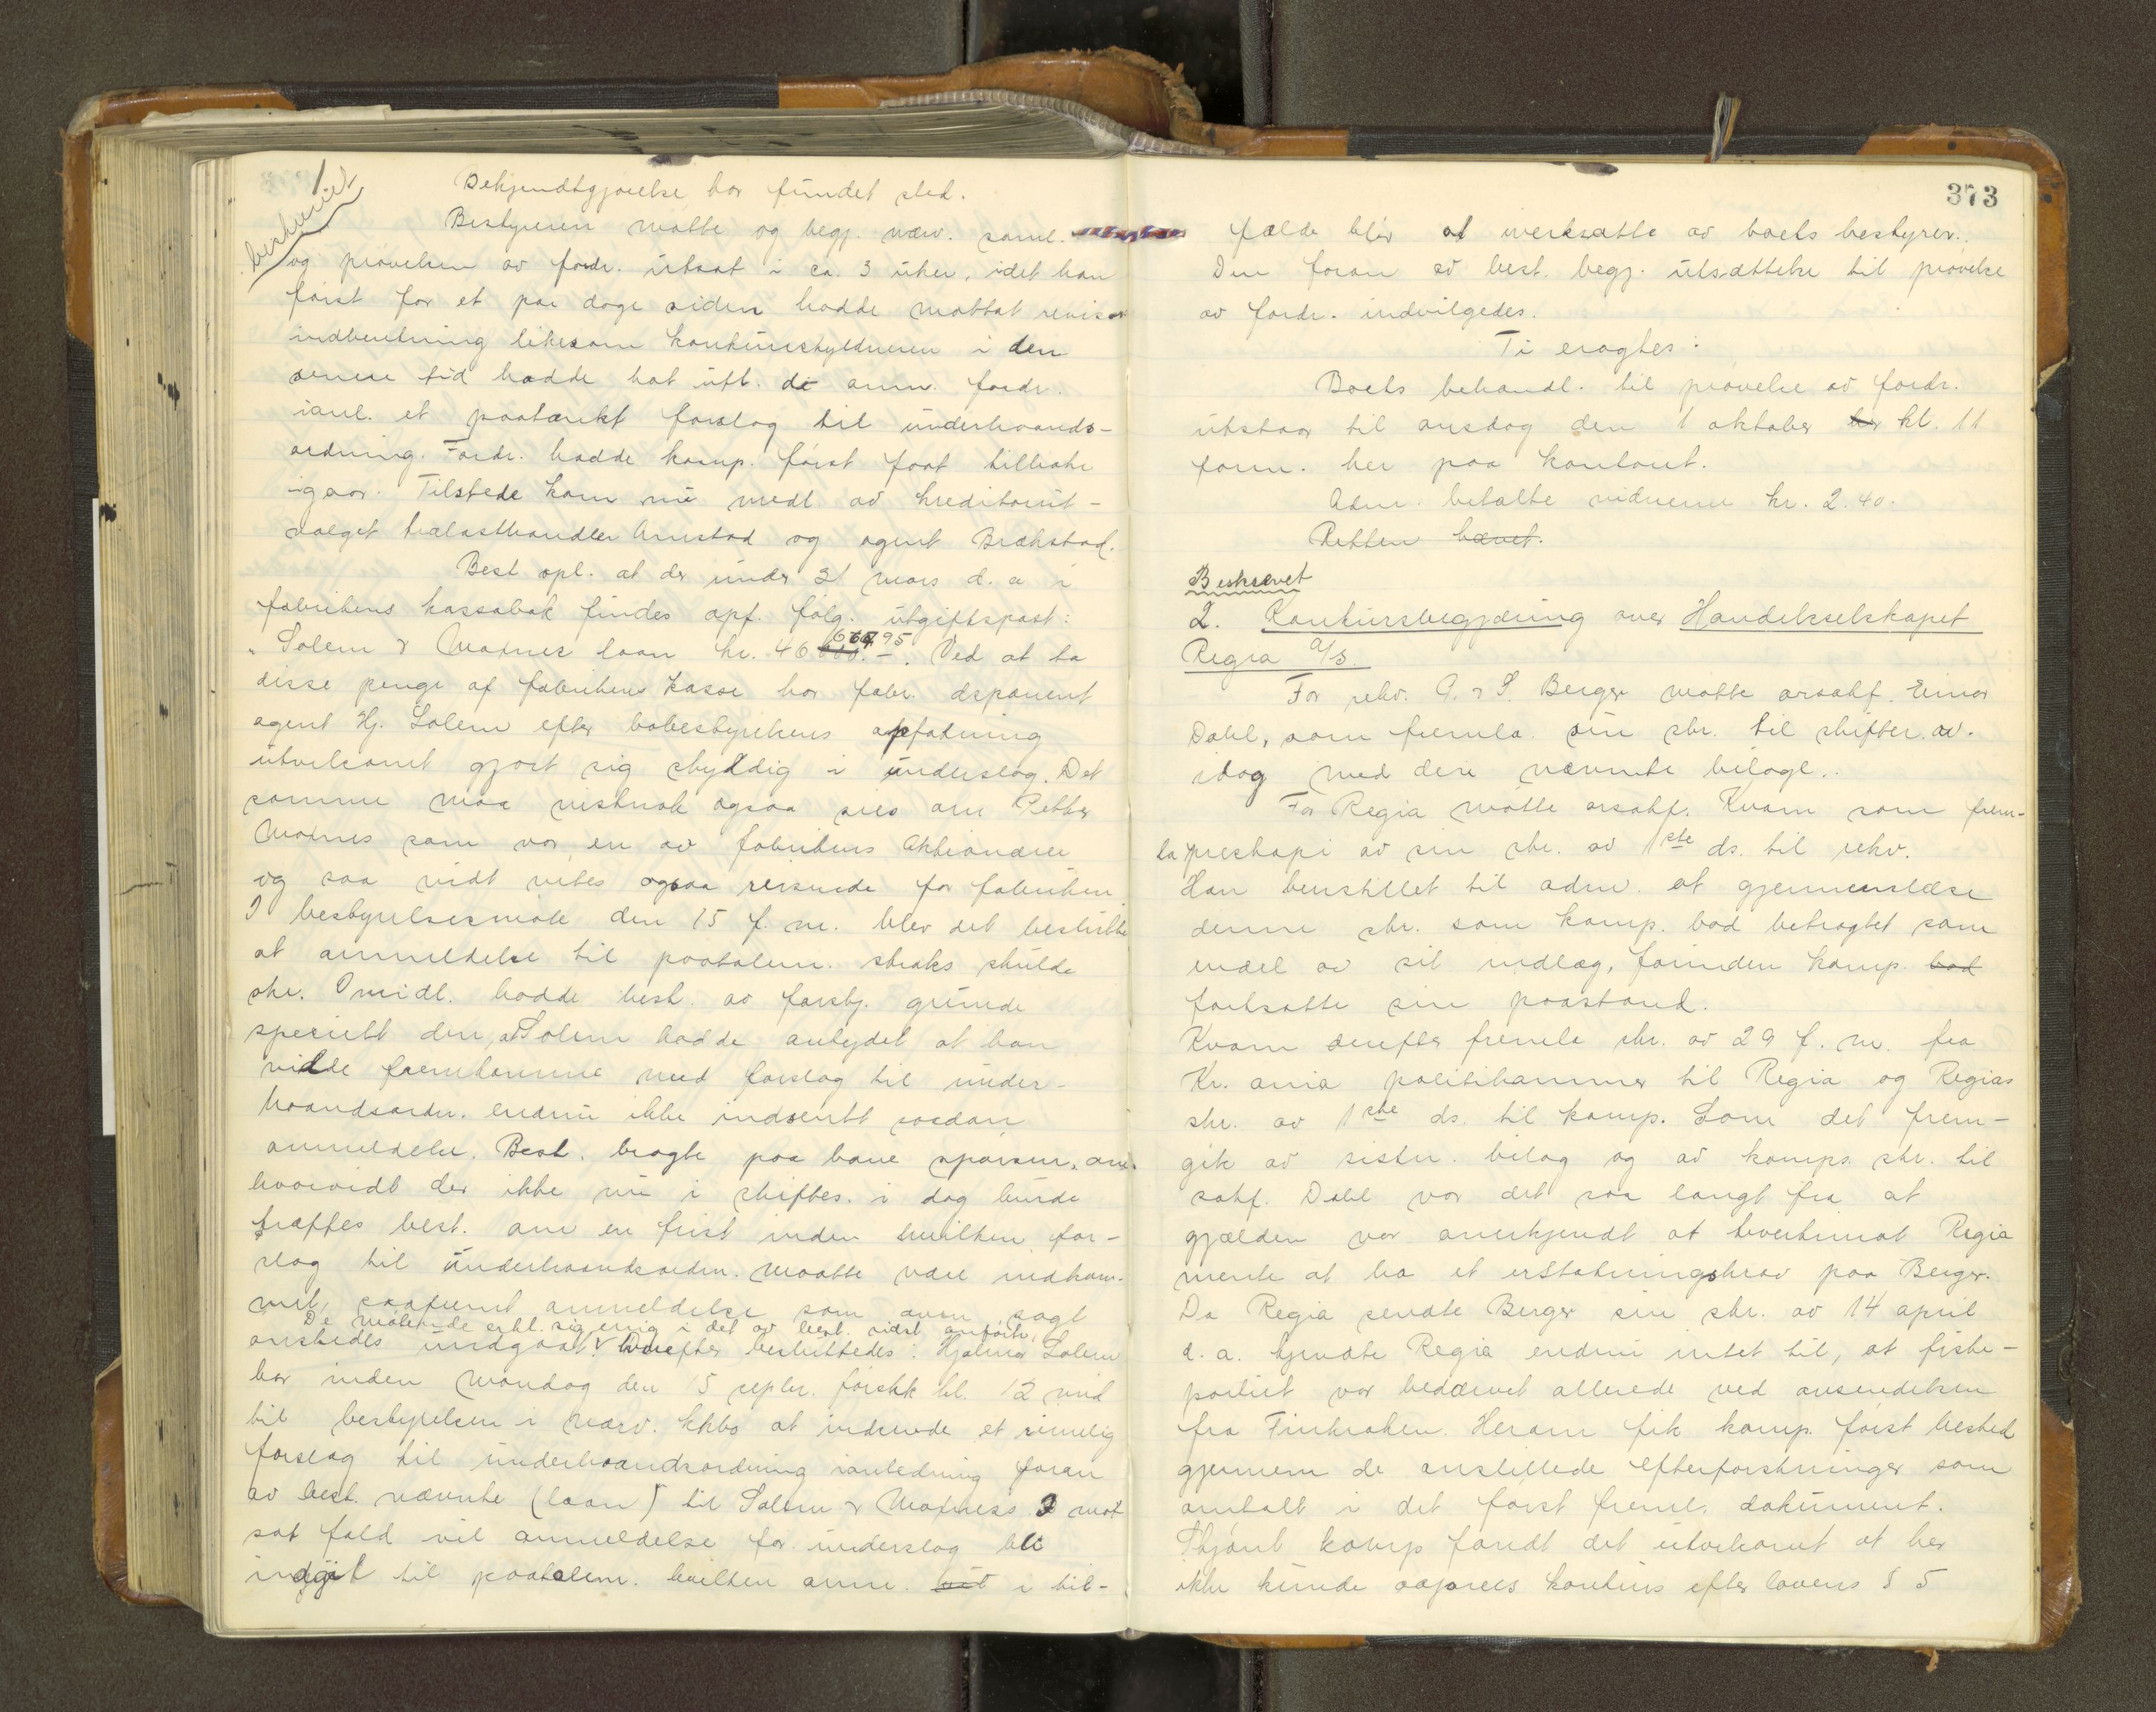 beskrevet
Bekjendtgjørelse har fundet sted.
Bestyreren møtte og begj. nærv. saml.
og prøvelsen av fordr. utsat i ca. 3 uker, idet han
først for et par dage siden hadde mottat revisor
indberetning likesom konkursskyldneren i den
senere tid hadde hat uft. de anm. fordr.
ianl. et paatænkt forslag til underhaands-
ordning. Fordr. hadde komp. først faat tilbake
igaar. Tilstede kom nu medl. av kreditorut-
valget trælasthandler Arnstad og agent Brækstad.
Best. opl. at der under 31 mars d. a. i
fabrikens kassabok findes opf. følg. utgiftspost:
"Solem & Møtnes laan kr. 46 667.95". Ved at ta
disse penge af fabrikens kasse har fabr. disponent
agent Hj. Solem efter bobestyrelsens opfatning
utvilsomt gjort sig skyldig i underslag. Det
samme maa vistnok ogsaa sies om Petter
Møtnes som var en av fabrikens aktionærer
og saa vidt vites ogsaa reisende for fabriken.
I bestyrelsesmøte den 15 f. m. blev det besluttet
at anmeldelse til paatalem. straks skulde
ske. Imidl. hadde best. av forskj. grunde
specielt den, at Solem hadde antydet at han
vilde fremkomme med forslag til under-
haandsordn. endnu ikke indsendt saadan
anmeldelse. Best. bragte paa bane spørsm. om
hvorvidt der ikke nu i skiftes. i dag burde
træffes best. om en frist inden hvilken for-
slag til underhaandsordn. maatte være indkom-
met, saafremt anmeldelse som oven sagt
De møtende erkl. sig enig i det av best. sidst anførte.
ønskedes undgaat. Derefter besluttedes: Hjalmar Solem
har inden mandag den 15 septbr. førstk. kl. 12 mid
til bestyrelsen i nærv. kkbo at indsende et rimelig
forslag til underhaandsordning ianledning foran
av best. nævnte (laan) til Solem & Møtnes. I mot
sat fald vil anmeldelse for underslag bli
indgit til paatalem. hvilken anm. i til-
373
fælde blir at iverksætte av boets bestyrer.
Den foran av best. begj. utsættelse til prøvelse
av fordr. indvilgedes.
Ti eragtes:
Boets behandl. til prøvelse av fordr.
utstaar til onsdag den 1 oktober kl. 11
form. her paa kontoret.
Adm. betalte vidnerne kr. 2.40.
Retten hævet.
Beskrevet
2. Konkursbegjæring over Handelsselskapet
Regia A/S.
For rekv. A. & S. Berger møtte orsakf. Einar
Dahl, som fremla sin skr. til skifter. av
idag med dere nævnte bilage.
For Regia møtte orsakf. Kvam som frem-
la gjenskapi av sin skr. av 1ste ds. til rekv.
Han henstillet til adm. at gjennemlæse
denne skr. som komp. bad betragtet som
endel av sit indlæg, forinden komp. bad
fortsatte sin paastand.
Kvam derefter fremla skr. av 29 f. m. fra
Kr.ania politikammer til Regia og Regias
skr. av 1ste ds. til komp. Som det frem-
gik av sistn. bilag og av komps. skr. til
sakf. Dahl var det saa langt fra at
gjælden var anerkjendt at tvertimot Regia
mente at ha et erstatningskrav paa Berger.
Da Regia sendte Berger sin skr. av 14 april
d. a. kjendte Regia endnu intet til, at fiske-
partiet var bedærvet allerede ved avsendelsen
fra Finkroken. Herom fik komp. først besked
gjennem de anstillede efterforskninger som
omtalt i det først freml. dokument.
Skjønt komp fandt det utvilsomt at her
ikke kunde aapnes konkurs efter lovens § 5